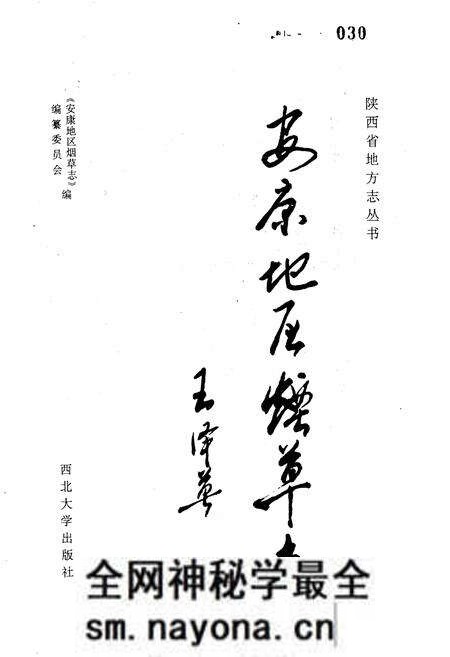 030
陕西省地方志丛书
安康地区煙草
王泽英
《安康地区烟草志》编
编纂委员会
西北大学出版社
全网神秘学最全
sm.nayona.cn